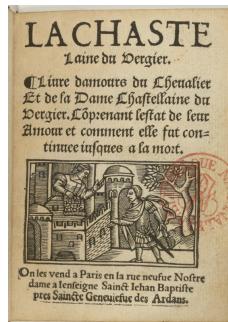 LA CHASTE
Laine du Vergier.
¶ Liure damours du Cheualier
Et de sa Dame Chastellaine du
Vergier. Cõprenant lestat de leur
Amour et comment elle fut con-
tinuee iusques a la mort.
On les vend a Paris en la rue neufue Nostre
dame a lenseigne Sainct Iehan Baptiste
pres Saincte Geneuiefue des Ardans.